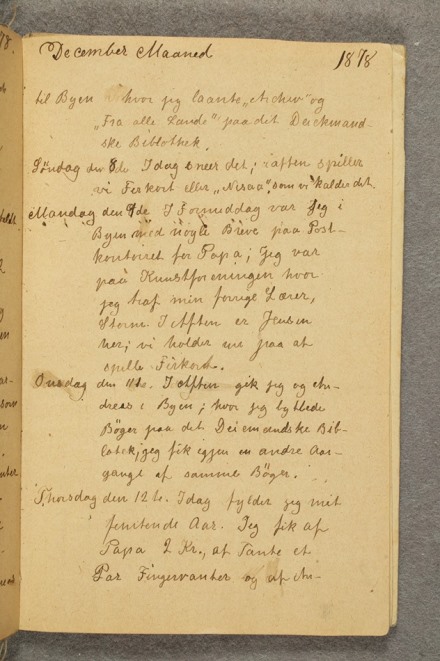 December Maaned 1878
til Byen hvor jeg laante „Archiv" og
„Fra alle Lande" paa det Deichmand-
ske Bibliothek.
Söndag den 8de Idag sneer det; iaften spiller
vi Firkort eller „Nisaa", som vi kalder det.
Mandag den 9de I Formiddag var jeg i
Byen med nogle Breve paa Post-
kontoret for Papa; Jeg var
paa Kunstforeningen hvor
jeg traf min forrige Lærer,
Storm. I Aften er Jensen
her; vi holder nu paa at
spille Firkort.
Onsdag den 11te. I Aften gik jeg og An-
dreas i Byen; hvor jeg byttede
Bøger paa det Deiemandske Bib-
liotek; jeg fik igjen en andre Aar-
gange af samme Bøger.
Thorsdag den 12te. Idag fylder jeg mit
femtende Aar. Jeg fik af
Papa 2 Kr., af Tante et
Par Fingervanter og af An-